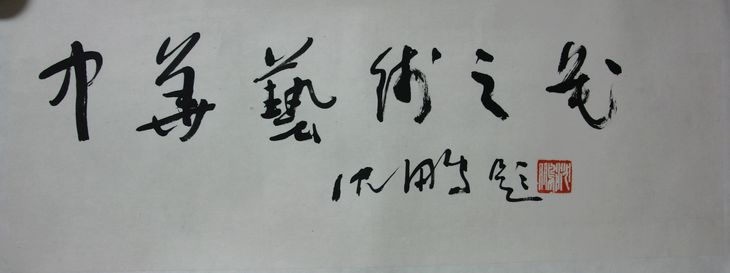 中華藝術之花
沈鵬題